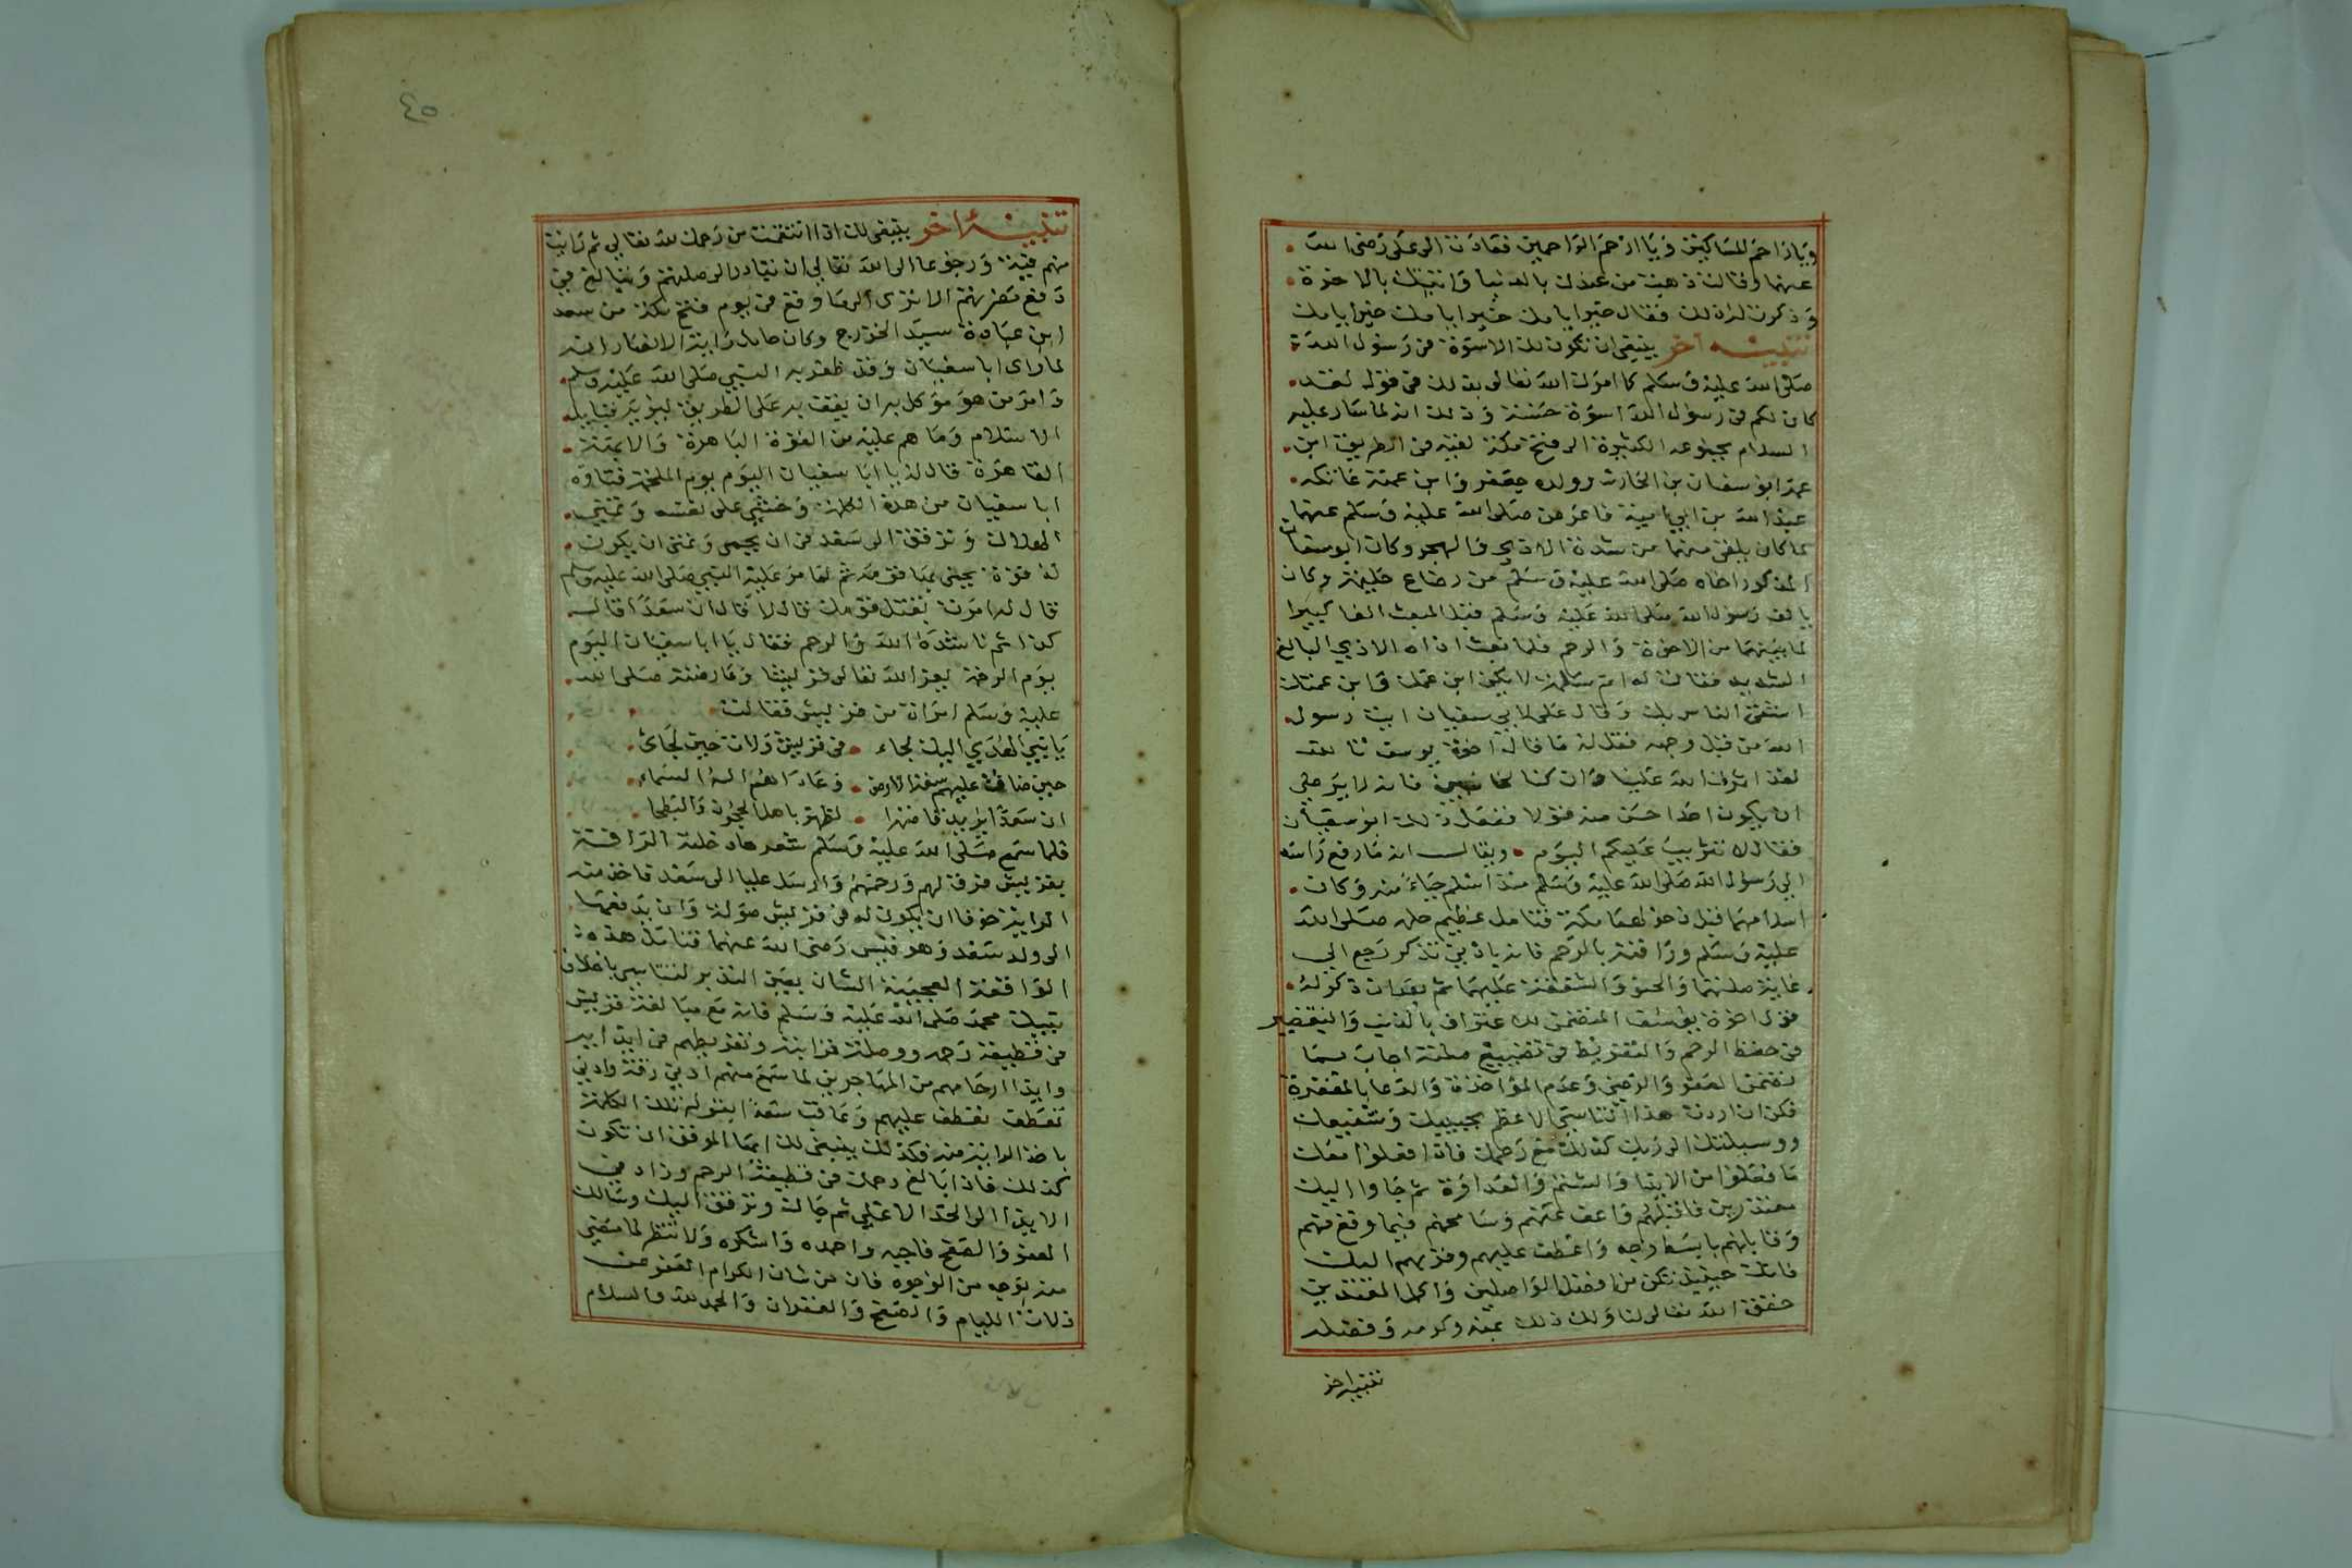 وياراحم المساكين ويا ارحم الراحمين فعادت الى على رضى الله
عنهما وقالت ذهبت من عندك بالدنيا واتيتك بالاخرة
وذكرت له ذلك فقال خيرا يامك خيرا يامك خيرا يامك
تنبيه اخر ينبغى ان تكون لك الاسوة فى رسول الله
صلى الله عليه وسلم كما امرك الله تعالى بذلك فى قوله لقد
كان لكم فى رسول الله اسوة حسنة وذلك انه لما سار عليه
السلام بجنوعه الكثيرة الى فتح مكة لقيه فى الطريق ابن
عمه ابو سفيان بن الحارث وولده جعفر وابن عمته عاتكه
عبد الله بن ابي امية فاعرض صلى الله عليه وسلم عنهما
لما كان يلقى منهما من شدة الاذى والهجو وكان ابو سفيان
المذكور اخاه صلى الله عليه وسلم من رضاع حليمة وكان
يالف رسول الله صلى الله عليه وسلم قبل المبعث الفا كبيرا
لما بينهما من الاخوة والرحم فلما بعث اذاه الاذي البالغ
الشديد فقالت له ام سلمة لا يكن ابن عمك وابن عمتك
اشقى الناس بك وقال على لابي سفيان ايت رسول
الله من قبل وجهه فقل له ما قاله اخوة يوسف تالله
لقد اثرك الله علينا وان كنا لخاطيين فانه لا يرضى
ان يكون احدا حسن منه قولا ففعل ذلك ابو سفيان
فقال لا تثريب عليكم اليوم ويقال انه ما رفع راسه
الي رسول الله صلى الله عليه وسلم منذ اسلم حياءً منه وكان
اسلامهما قبل دخولهما مكة فتامل عظيم حلمه صلى الله
عليه وسلم ورافته بالرحم فانه بادني تذكر رجع الي
غاية صلتهما والحنو والشفقة عليهما ثم بعدان ذكر له
قول اخوة يوسف المتضمن للاعتراف بالذنب والتقصير
فى حفظ الرحم والتفريط فى تضييع صلته اجاب بما
تضمن العفو والرضى وعدم المؤاخذة والدعا بالمغفرة
فكن ان اردت هذا التناسى الاعظم بحبيبك وشفيعك
ووسيلتك الى ربك كذلك مع رحمك فاذا فعلوا معك
ما فعلوا من الايذا والشتم والعداوة ثم جاوا اليك
معتذرين فاقبلهم واعف عنهم وسامحهم فيما وقع منهم
وقابلهم بابسط وجه واعطف عليهم وقربهم اليك
فانك حينيذ تكن من افضل الواصلين واكمل المقتدين
حقق الله تعالى لنا ولك ذلك بمنه وكرمه وفضله
تنبيه اخر
٤٥
تنبيه اخر ينبغى لك اذا انتقمت من رحمك لله تعالي ثم رايت
منهم فيئة ورجوعا الى الله تعالي ان تبادر الى صلتهم وتبالغ فى
دفع مضرتهم الا ترى الى ما وقع فى يوم فتح مكة من سعد
ابن عبادة سيد الخزرج وكان حامل راية الانصار انه
لما راى ابا سفيان وقد ظفر به النبي صلى الله عليه وسلم
وامر من هو موكل به ان يقف به على الطريق ليريه قبايل
الاسلام وما هم عليه من القوة الباهرة والابهة
القاهرة قال له يا ابا سفيان اليوم يوم الملحمة فتاوه
ابا سفيان من هذه الكلمة وخشي على نفسه وتمني
الهلاك وترفق الى سعد فى ان يحمى وتمنى ان يكون
له قوة يحمى بها قومه ثم لما مر عليه النبي صلى الله عليه وسلم
قال له امرت بقتل قومك قال لا قال ان سعدا قال
كذا ثم ناشده الله والرحم فقال يا ابا سفيان اليوم
يوم الرحمة يعز الله تعالى قريشا وعارضته صلى الله
عليه وسلم امراة من قريش فقالت
يا نبي الهدي اليك لجاء فى قريش ولات حين لجائ
حين ضاقت عليهم سعة الارض وعاداهم اله السماء
ان سعدا يريد قاصمة الظهر باهل الحجون والبطحا
فلما سمع صلى الله عليه وسلم شعرها دخلته الرافة
بقريش فرق لهم ورحمهم وارسل عليا الى سعد فاخذ منه
الراية خوفا ان يكون له فى قريش صولة وان يدفعها
الى ولد سعد وهو قيس رضى الله عنهما فتامل هذه
الواقعة العجيبة الشان بعين التدبر لتتاسى باخلاق
نبيك محمد صلى الله عليه وسلم فانه مع مبالغة قريش
فى قطيعة رحمه ووصلة قرابته وتفريطهم فى ايذائه
وايذا ارحامهم من المهاجرين لما سمع منهم ادني رقة وادني
تعطف تعطف عليهم وعاقب سعدا بقوله تلك الكلمة
باخذ الراية منه فكذلك ينبغى لك ايها الموفق ان تكون
كذلك فاذا بالغ رحمك فى قطيعة الرحم وزاد في
الايذا الى الحد الاعلي ثم جا لك وترفق اليك وسالك
العفو والصفح فاجبه واحمده واشكره ولا تنظر لما مضي
منه بوجه من الوجوه فان من شان الكرام العفو عن
ذلات الليام والصفح والغفران والحمد لله والسلام